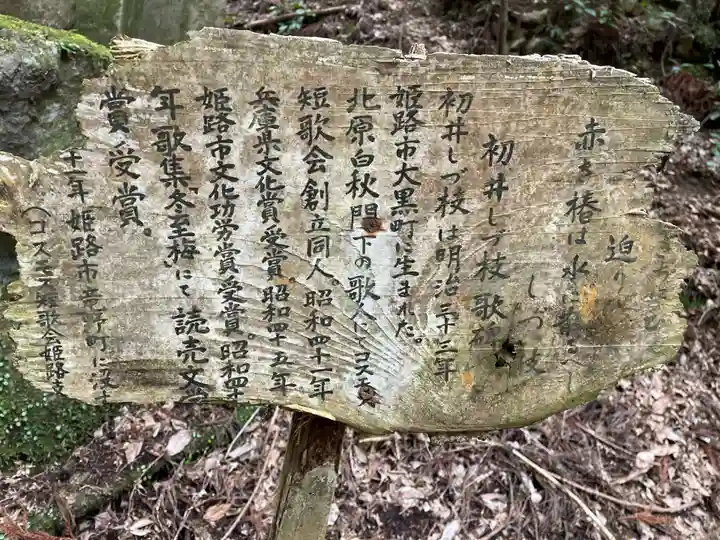 迫り
赤き椿は水に
しづ枝
初井しづ枝歌碑
初井しづ枝は明治三十三年
姫路市大黒町に生まれた。
北原白秋門下の歌人にてコスモス
短歌会創立同人。昭和四十一年
兵庫県文化賞受賞。昭和四十五年
姫路市文化功労賞受賞。昭和四十
年歌集「冬至梅」にて読売文学
賞受賞。
十一年姫路市竜野町に没す
(コスモス短歌会姫路支